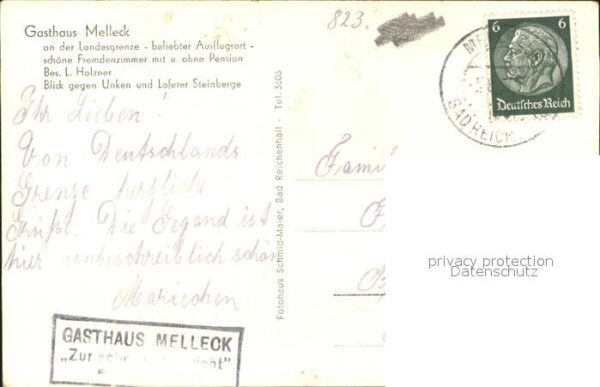 Gasthaus Melleck
an der Landesgrenze - beliebter Ausflugort -
schöne Fremdenzimmer mit u. ohne Pension
Bes. L. Holzner
Blick gegen Unken und Loferer Steinberge
823.
6 6
Deutsches Reich
BAD REICH
Ihr Lieben!
Von Deutschlands
Grenze herzliche
Grüße. Die Gegend ist
hier unbeschreiblich schön
Mariechen
Fotohaus Schmid-Maier, Bad Reichenhall - Tel. 3606
Famil
privacy protection
Datenschutz
GASTHAUS MELLECK
"Zur